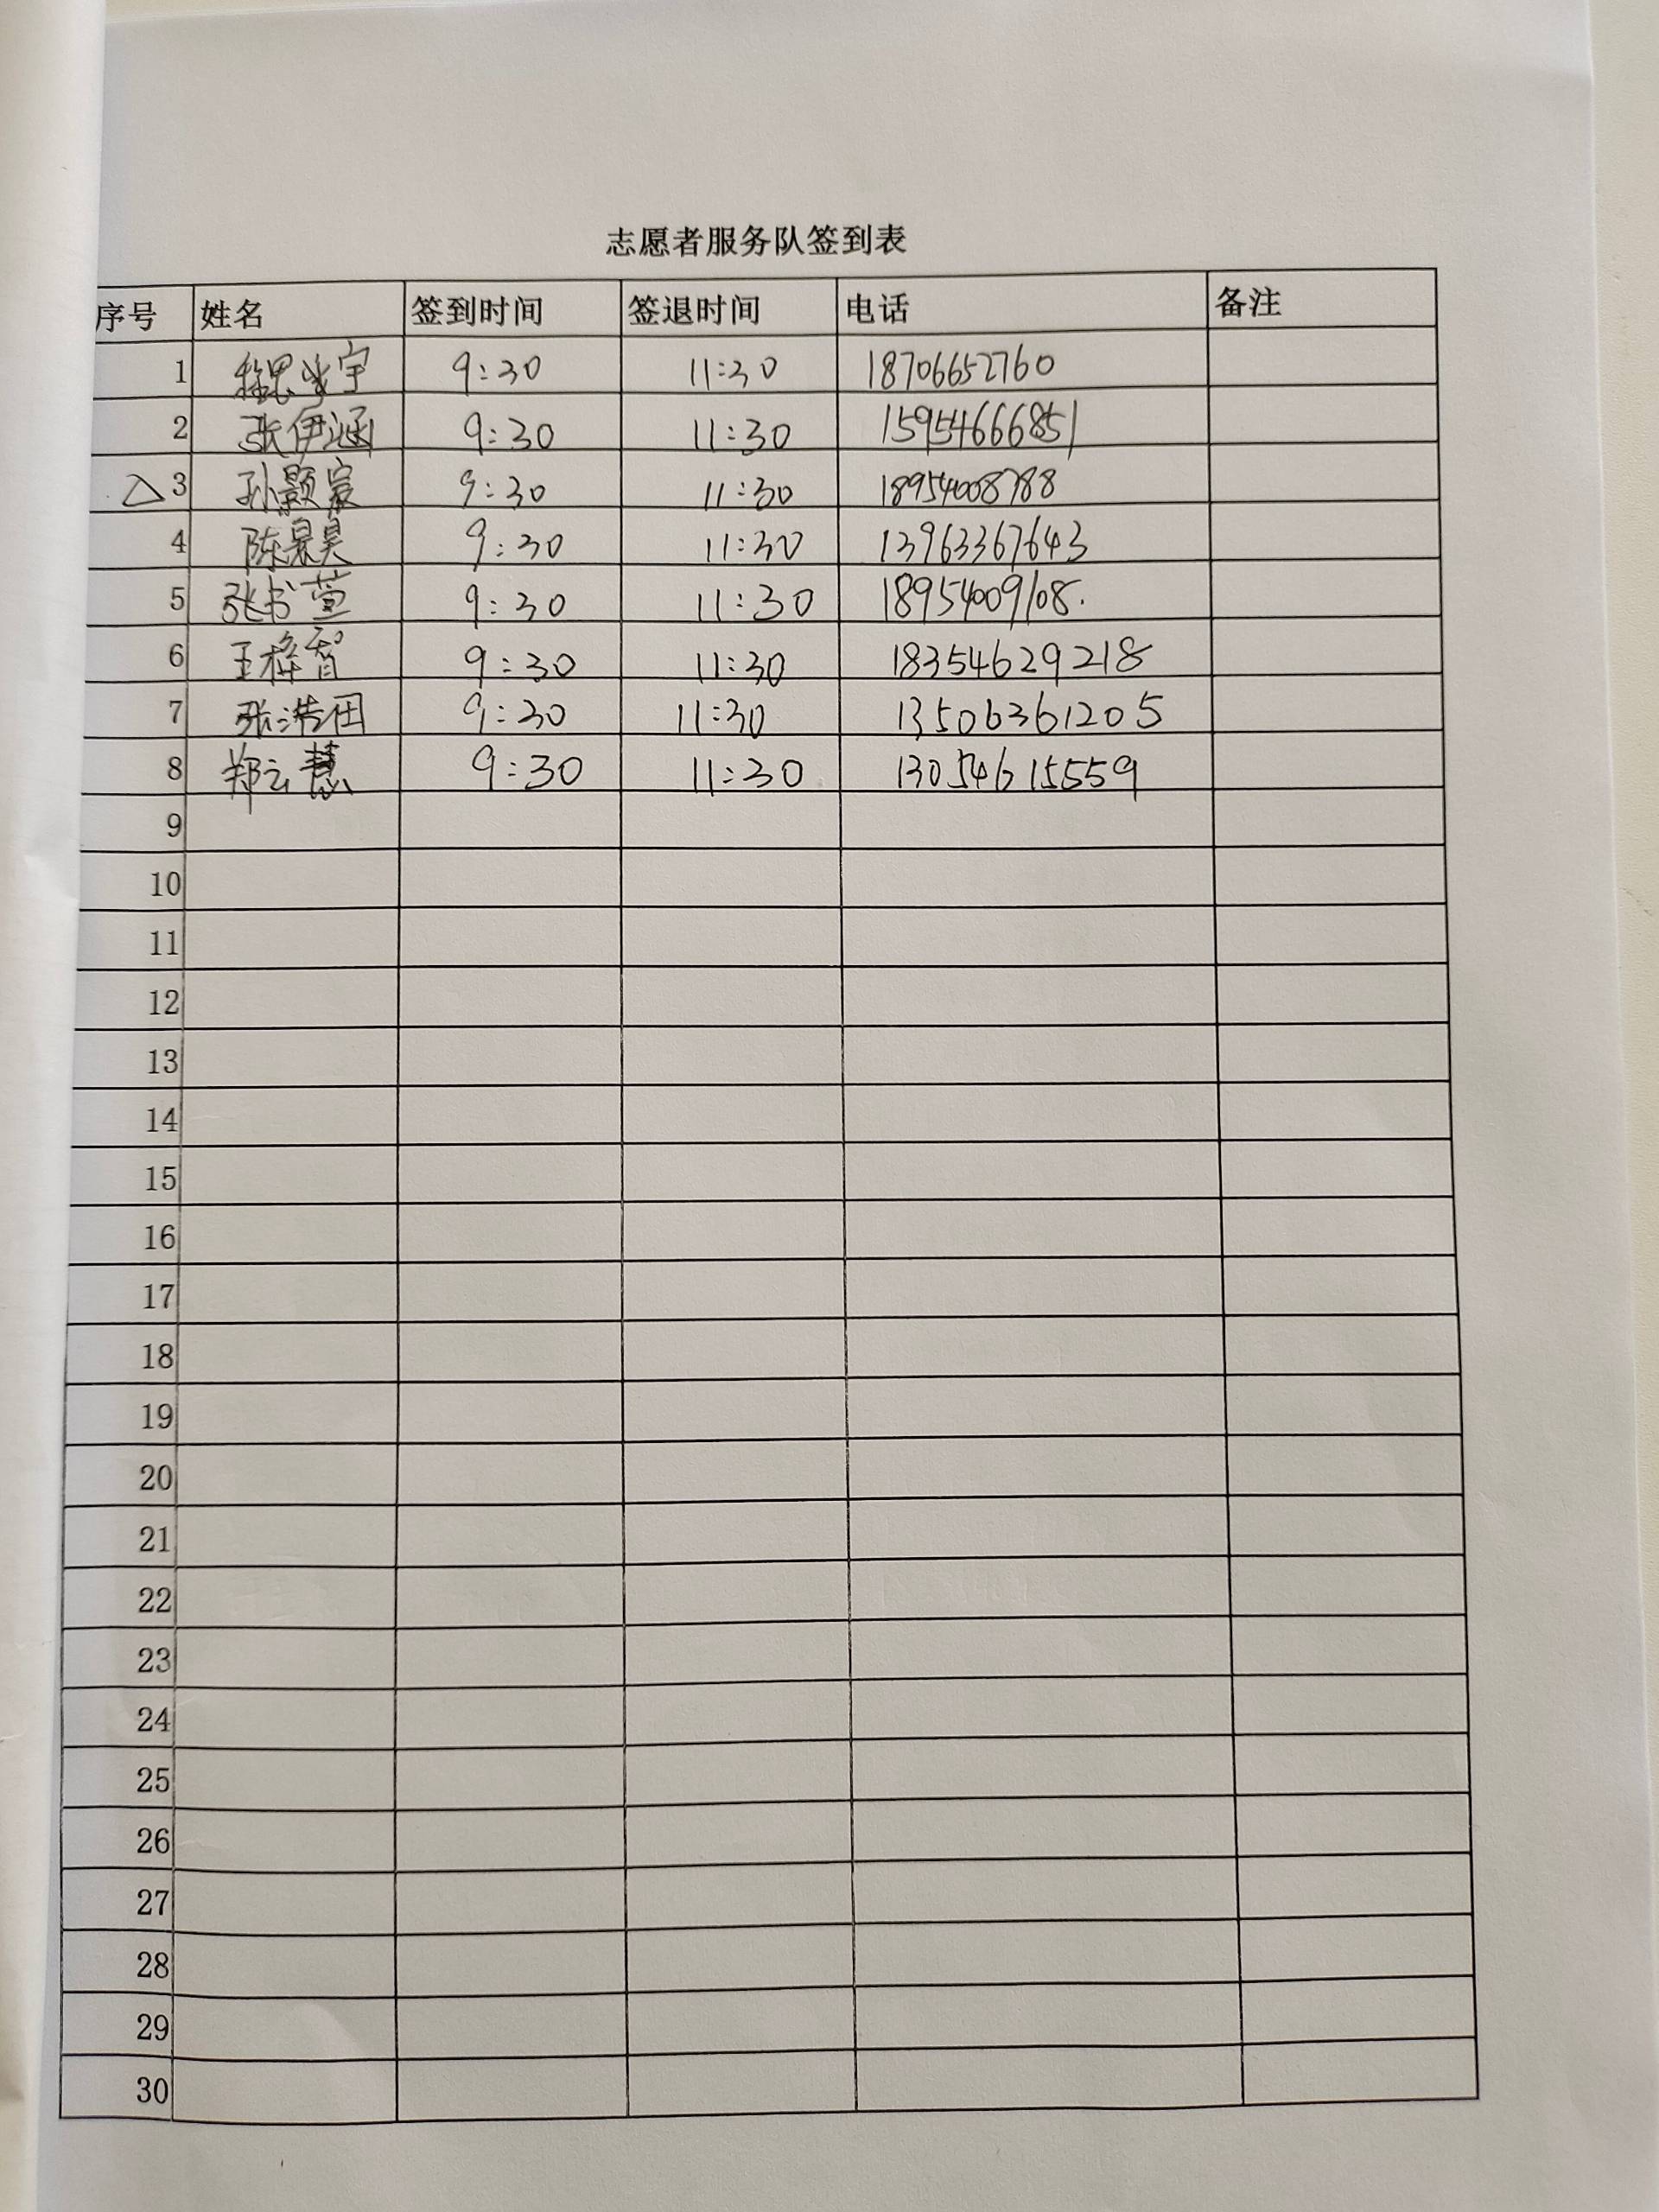 志愿者服务队签到表
序号 姓名 签到时间 签退时间 电话 备注
1 9:30 11:30 18706652760
2 张伊涵 9:30 11:30 15954666851
△ 3 孙颢宸 9:30 11:30 18954008788
4 陈景昊 9:30 11:30 13963367643
5 张书萱 9:30 11:30 18954009108.
6 王梓智 9:30 11:30 18354629218
7 张浩田 9:30 11:30 13506361205
8 郑云慧 9:30 11:30 13054615559
9
10
11
12
13
14
15
16
17
18
19
20
21
22
23
24
25
26
27
28
29
30